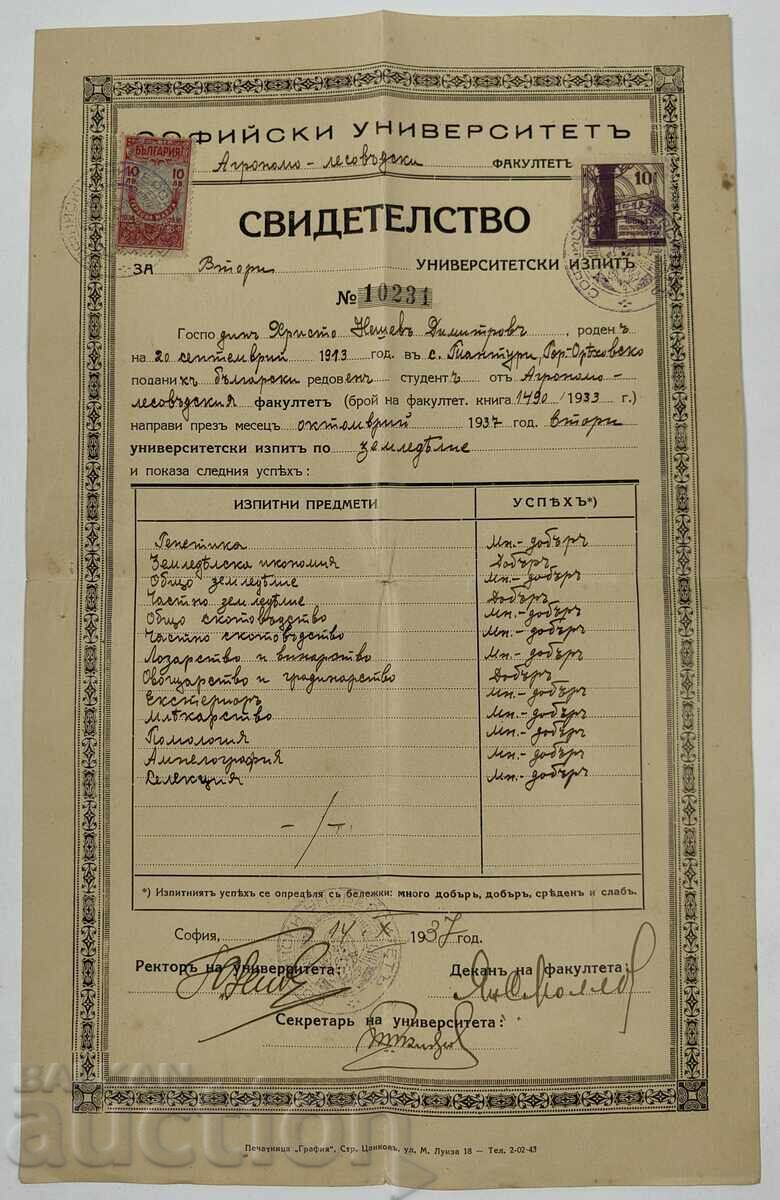 СОФИЙСКИ УНИВЕРСИТЕТЪ
Агрономо-лесовъдски ФАКУЛТЕТЪ
БЪЛГАРИЯ
10 ЛВ 10 ЛВ
10
СВИДЕТЕЛСТВО
ЗА Втори УНИВЕРСИТЕТСКИ ИЗПИТЪ
№ 10231
Господинъ Христо Нешевъ Димитровъ, роденъ
на 20 септемврий 1913 год. въ с. Гиантури, Гор-Орѣховско
поданикъ български редовенъ студентъ отъ Агрономо-
лесовъдския факултетъ (брой на факултет. книга 1490/1933 г.)
направи презъ месецъ октомврий 1937 год. втори
университетски изпитъ по земледѣлие
и показа следния успѣхъ:
ИЗПИТНИ ПРЕДМЕТИ УСПѢХЪ*)
Генетика Мн.-добъръ
Земледѣлска икономия Добъръ
Общо земледѣлие Мн.-добъръ
Частно земледѣлие Добъръ
Общо скотовъдство Мн.-добъръ
Частно скотовъдство Мн.-добъръ
Лозарство и винарство Мн.-добъръ
Овощарство и градинарство Добъръ
Екстериоръ Мн.-добъръ
Млѣкарство Мн.-добъръ
Помология Мн.-добъръ
Ампелография Мн.-добъръ
Селекция Мн.-добъръ
*) Изпитниятъ успѣхъ се опредѣля съ бележки: много добъръ, добъръ, срѣденъ и слабъ.
София, 14.X 1937 год.
Ректоръ на университета: Деканъ на факултета:
Секретарь на университета:
BALKAN
auction
Печатница „Графия", Стр. Цанковъ, ул. М. Луиза 18 — Тел. 2-02-43